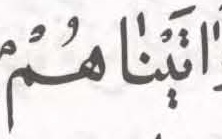 اٰتَيْنَاهُمْ